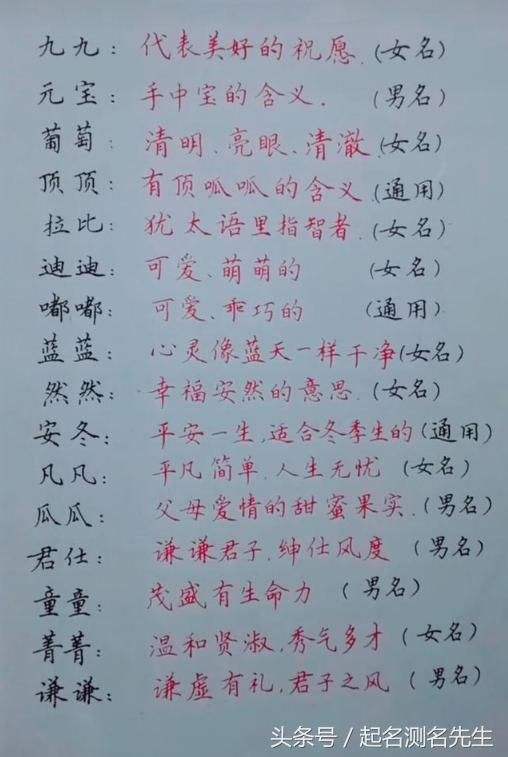 九九：代表美好的祝愿.(女名)
元宝：手中宝的含义.(男名)
葡萄：清明、亮眼、清澈.(女名)
顶顶：有顶呱呱的含义(通用)
拉比：犹太语里指智者.(女名)
迪迪：可爱、萌萌的(女名)
嘟嘟：可爱、乖巧的(通用)
蓝蓝：心灵像蓝天一样干净(女名)
然然：幸福安然的意思.(女名)
安冬：平安一生,适合冬季生的(通用)
凡凡：平凡简单.人生无忧(女名)
瓜瓜：父母爱情的甜蜜果实.(男名)
君仕：谦谦君子.绅仕风度(男名)
童童：茂盛有生命力(男名)
菁菁：温和贤淑,秀气多才(女名)
谦谦：谦虚有礼,君子之风(男名)
头条号 / 起名测名先生